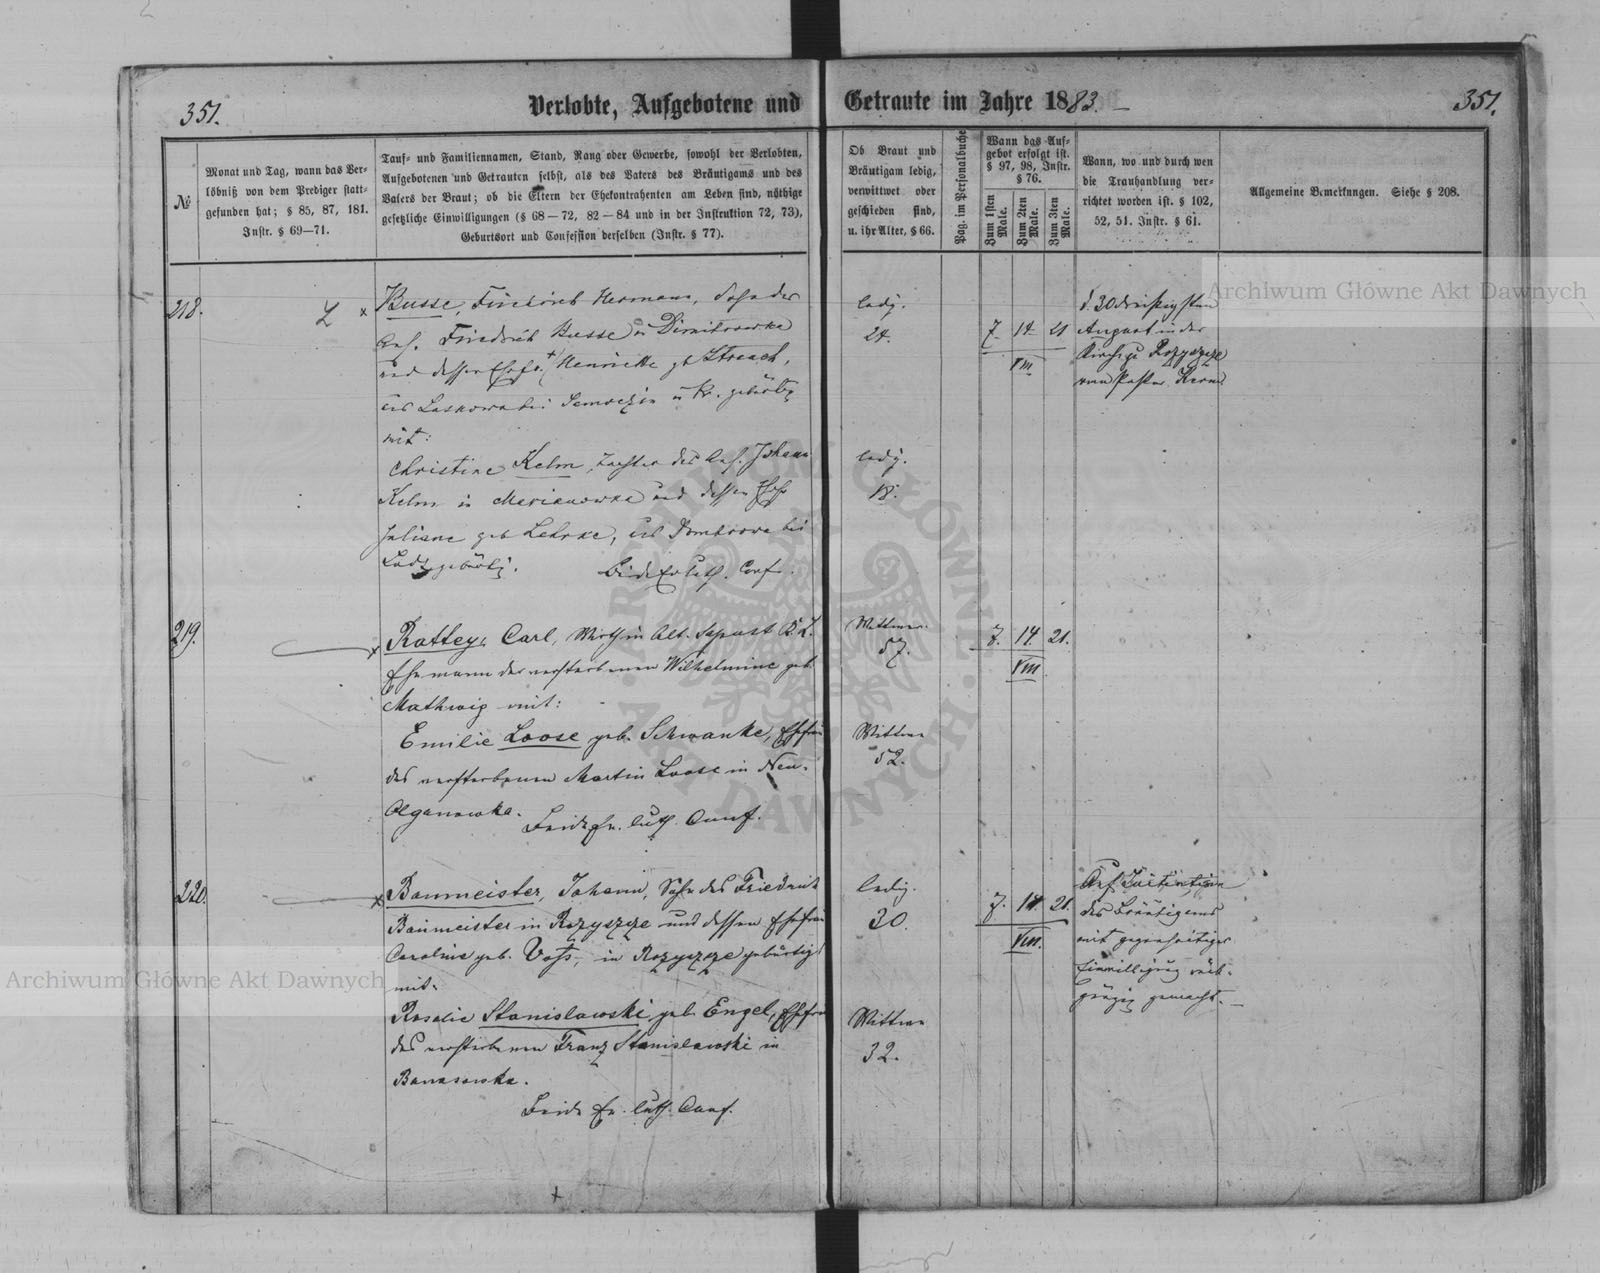 351.
Verlobte, Aufgebotene und Getraute im Jahre 1883.
351.
№
Monat und Tag, wann das Ver-
löbniß von dem Prediger statt-
gefunden hat; § 85, 87, 181.
Instr. § 69—71.
Tauf- und Familiennamen, Stand, Rang oder Gewerbe, sowohl der Verlobten,
Aufgebotenen und Getrauten selbst, als des Vaters des Bräutigams und des
Vaters der Braut; ob die Eltern der Ehekontrahenten am Leben sind, nöthige
gesetzliche Einwilligungen (§ 68—72, 82—84 und in der Instruktion 72, 73),
Geburtsort und Confession derselben (Instr. § 77).
Ob Braut und
Bräutigam ledig,
verwittwet oder
geschieden sind,
u. ihr Alter, § 66.
Pag. im Personalbuche
Wann das Auf-
gebot erfolgt ist.
§ 97, 98, Instr.
§ 76.
Zum 1sten Male.
Zum 2ten Male.
Zum 3ten Male.
Wann, wo und durch wen
die Trauhandlung ver-
richtet worden ist. § 102,
52, 51. Instr. § 61.
Allgemeine Bemerkungen. Siehe § 208.
218.
Busse, Friedrich Hermann, Sohn des
Friedrich Busse in Dimitrowka
und dessen Ehefr. + Henriette geb. Streach,
aus Laskowa bei Samoczin in Pr. gebürtig
mit:
Christine Kelm, Tochter des Johann
Kelm in Marianowka und dessen Ehefr.
Juliane geb. Lehrke, aus Dombrowa bei
Lodz gebürtig.
Beide Ev. luth. Conf.
ledig.
24.
ledig.
18.
7 14 21
VIII
d. 30 dreißigsten
August in der
Kirche zu Rozyszcze
vom Pastor Kerm
219.
Rattey, Carl, Wirth in Alt-
Ehemann der verstorbenen Wilhelmine geb.
Mathwig mit:
Emilie Loose geb. Schwanke, Ehefrau
des verstorbenen Martin Loose in Neu-
Olganowka.
Beide Ev. luth. Conf.
Wittwer.
57.
Wittwe
52.
7. 14. 21.
VIII
220.
Baumeister, Johann, Sohn des Friedrich
Baumeister in Rozyszcze und dessen Ehefrau
Caroline geb. Voss, in Rozyszcze gebürtig
mit:
Rosalie Stanislawski geb. Engel, Ehefrau
des verstorbenen Franz Stanislawski in
Banasowka.
Beide Ev. luth. Conf.
ledig.
30.
Wittwe
32.
7. 14. 21.
VIII.
Auf
des Bräutigams
mit gegenseitiger
Einwilligung rück-
gängig gemacht.
Archiwum Główne Akt Dawnych
Archiwum Główne Akt Dawnych
ARCHIWUM GŁÓWNE AKT DAWNYCH